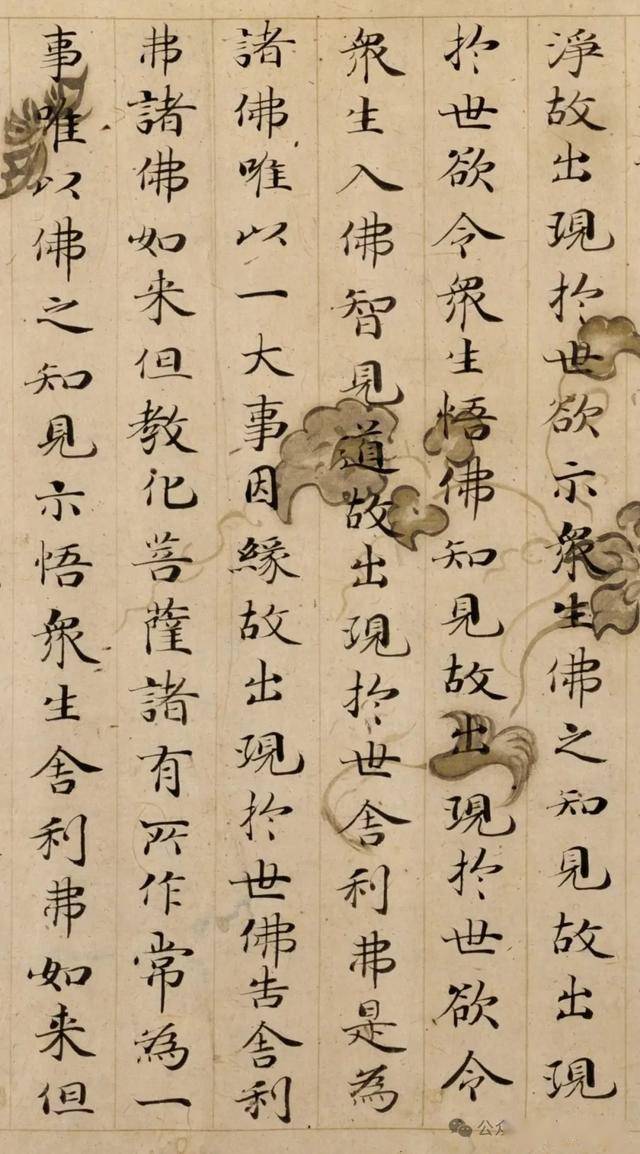 淨故出現於世欲示衆生佛之知見故出現
於世欲令衆生悟佛知見故出現於世欲令
衆生入佛智見道故出現於世舍利弗是為
諸佛唯以一大事因緣故出現於世佛告舍利
弗諸佛如来但教化菩薩諸有所作常為一
事唯以佛之知見示悟衆生舍利弗如来但